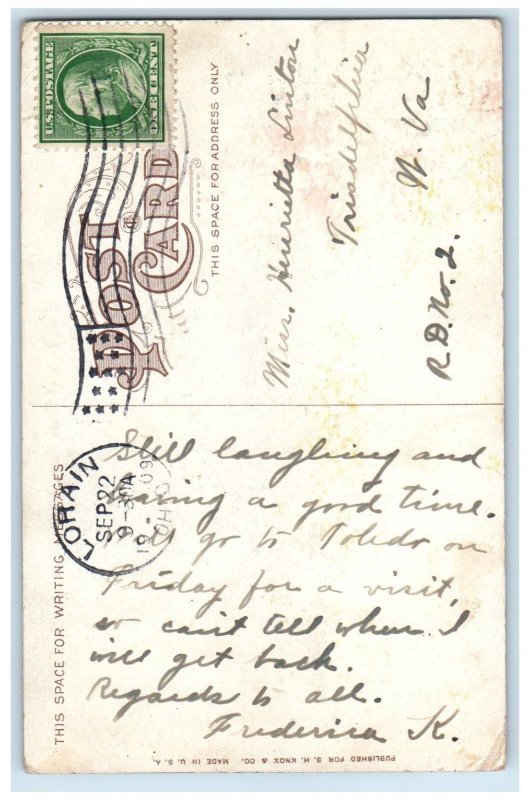 U.S. POSTAGE
ONE CENT
POST CARD
THIS SPACE FOR ADDRESS ONLY
Miss. Henrietta Linton
Triadelphia
W. Va
R.D. No. 2.
LORAIN
SEP 22
9-30A
1909
OHIO
THIS SPACE FOR WRITING MESSAGES
Still laughing and
having a good time.
go to Toledo on
Friday for a visit,
so can't tell when I
will get back.
Regards to all.
Frederica K.
PUBLISHED FOR S. H. KNOX & CO. MADE IN U. S. A.